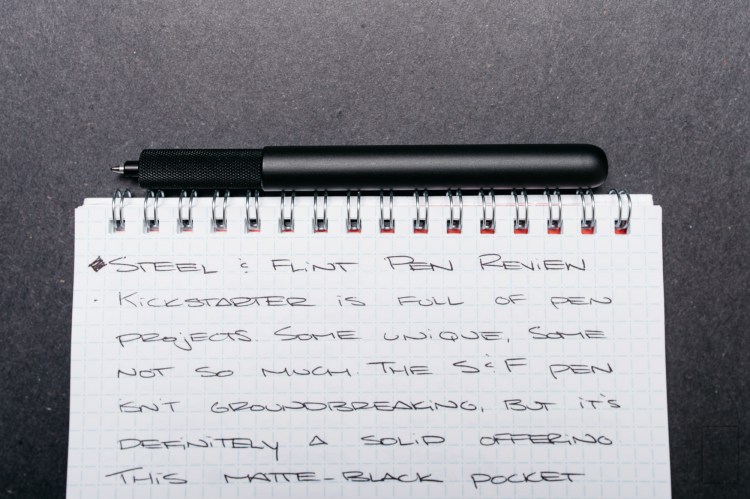 ◆ STEEL & FLINT PEN REVIEW
· KICKSTARTER IS FULL OF PEN
PROJECTS. SOME UNIQUE, SOME
NOT SO MUCH. THE S&F PEN
ISN'T GROUNDBREAKING, BUT IT'S
DEFINITELY A SOLID OFFERING
THIS MATTE-BLACK POCKET